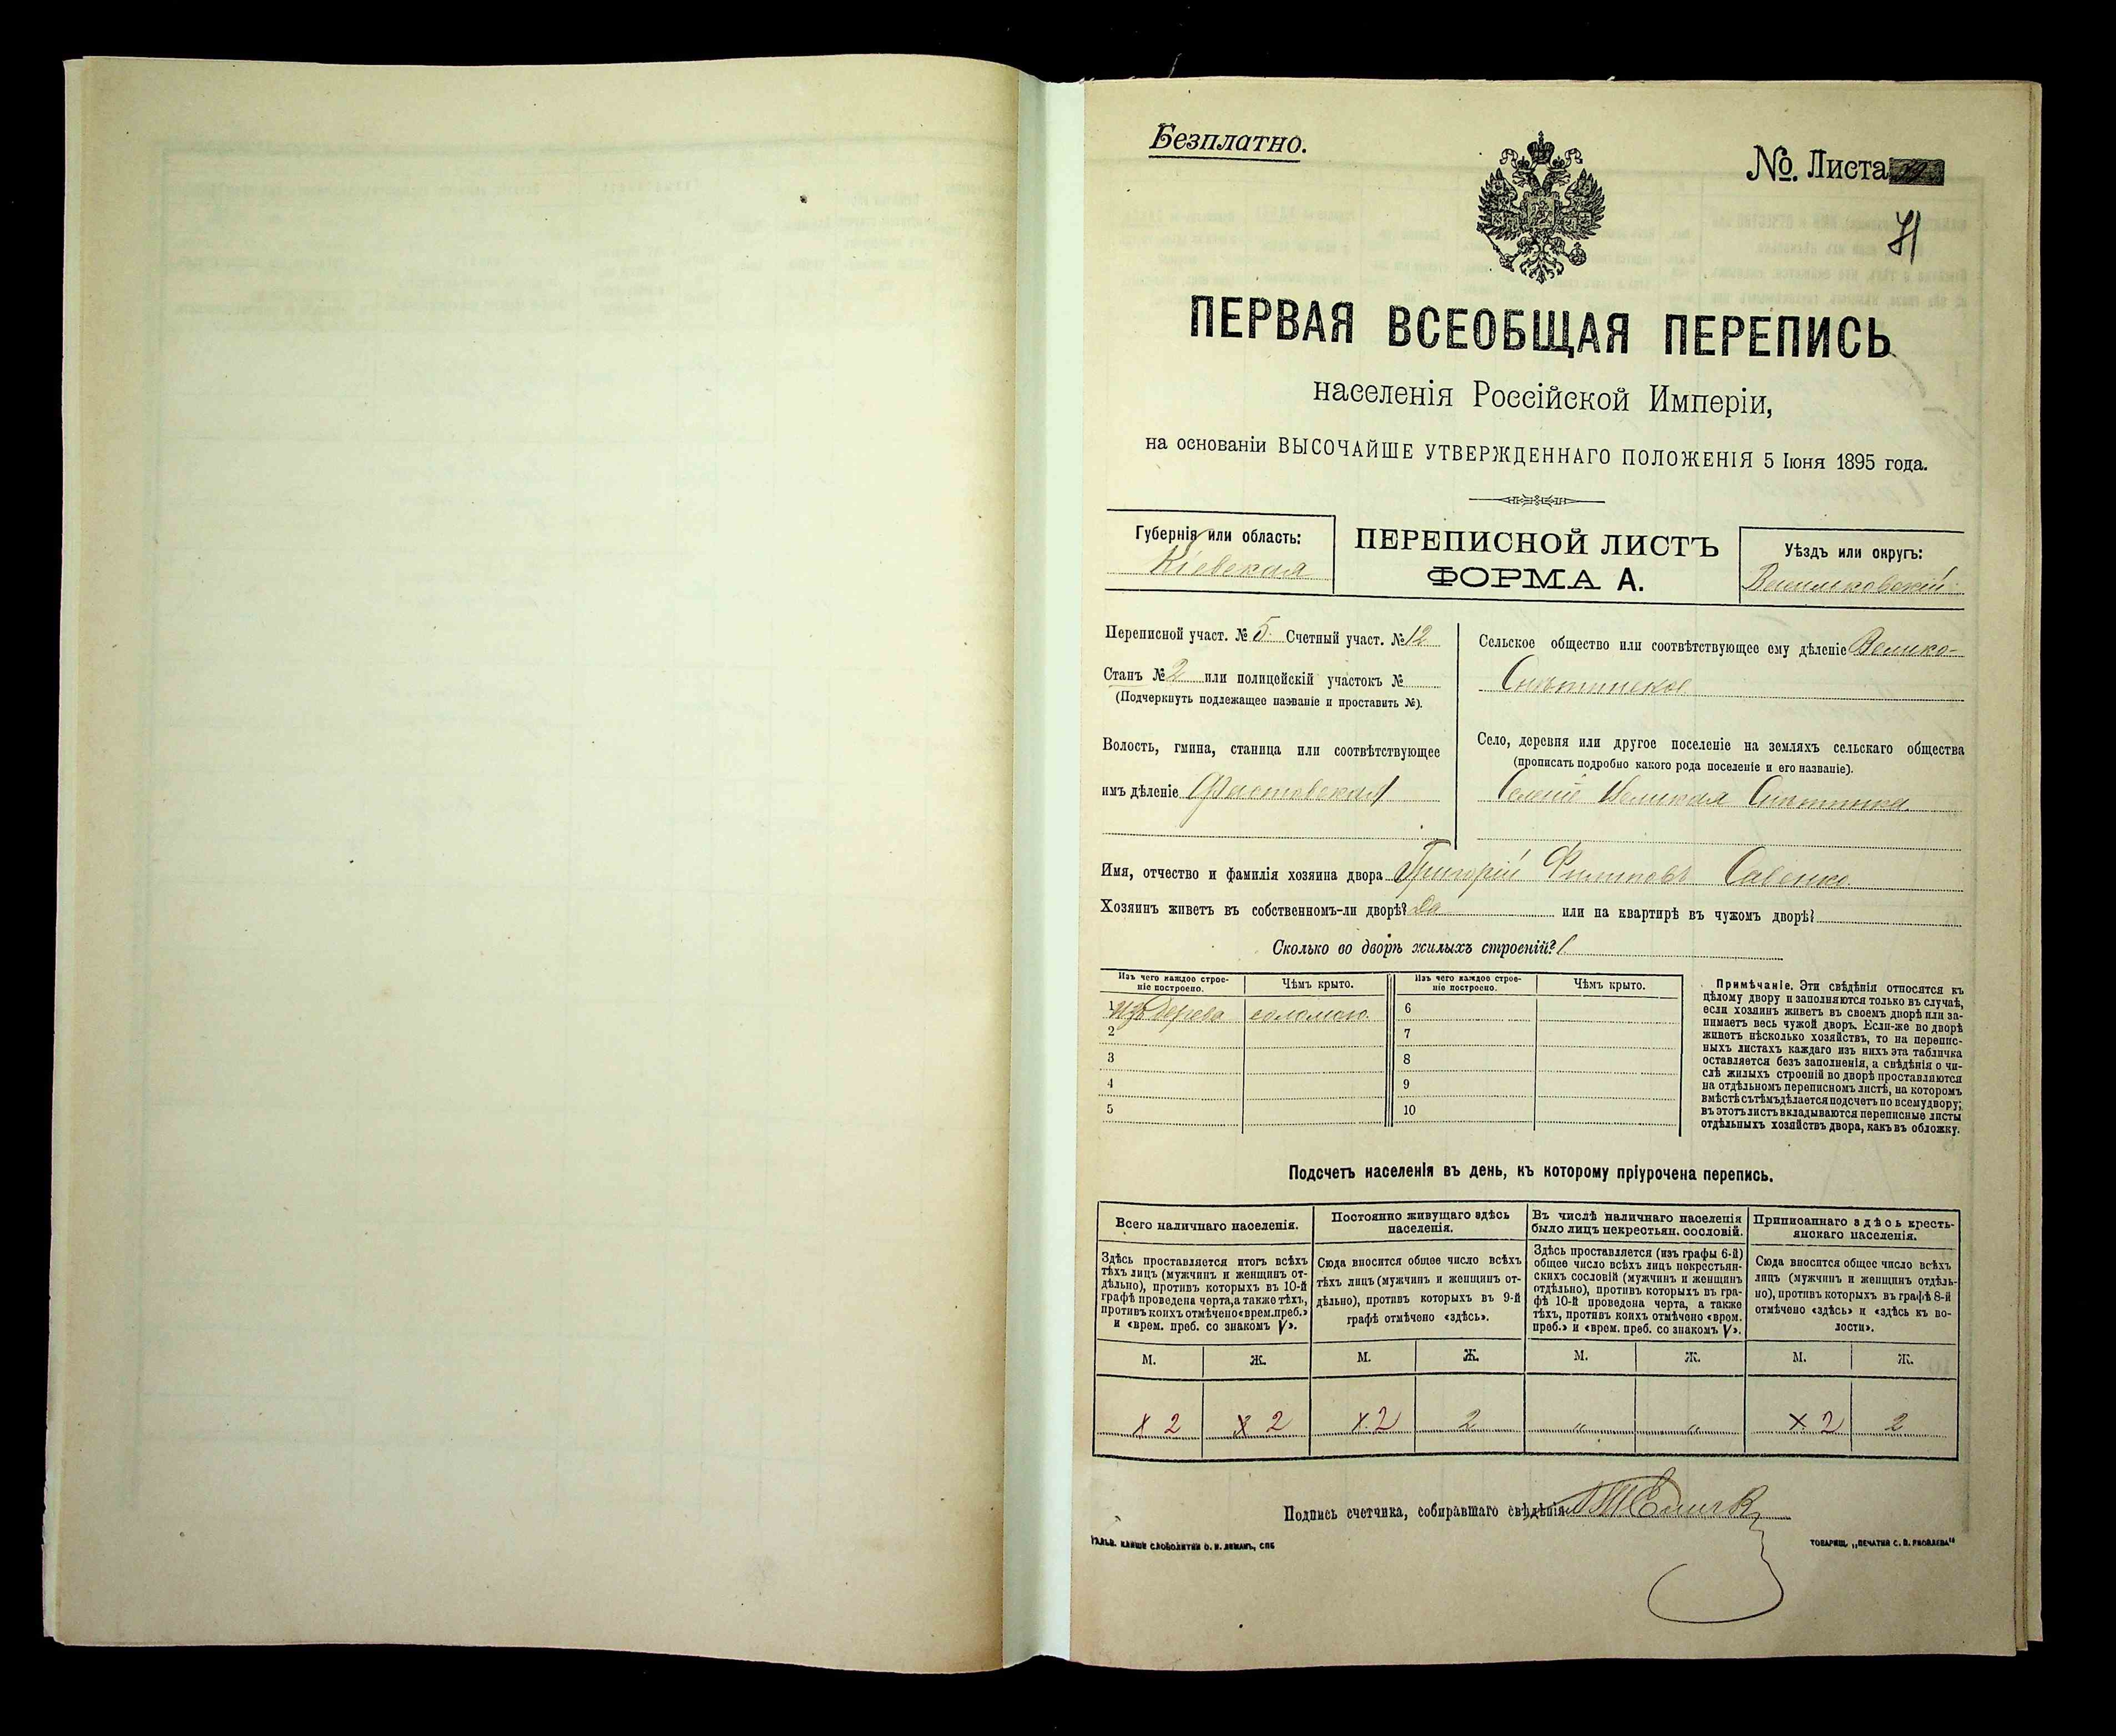 Безплатно.
№. Листа
71
ПЕРВАЯ ВСЕОБЩАЯ ПЕРЕПИСЬ
населенія Россійской Имперіи,
на основаніи ВЫСОЧАЙШЕ УТВЕРЖДЕННАГО ПОЛОЖЕНІЯ 5 Іюня 1895 года.
Губернія или область:
Кіевская
ПЕРЕПИСНОЙ ЛИСТЪ
ФОРМА А.
Уѣздъ или округъ:
Васильковскій
Переписной участ. № 5. Счетный участ. № 12
Станъ № 2 или полицейскій участокъ №
(Подчеркнуть подлежащее названіе и проставить №).
Волость, гмина, станица или соотвѣтствующее
имъ дѣленіе Фастовская
Сельское общество или соотвѣтствующее ему дѣленіе Велико-
Снѣтинское
Село, деревня или другое поселеніе на земляхъ сельскаго общества
(прописать подробно какого рода поселеніе и его названіе).
Селеніе Великая Снѣтинка
Имя, отчество и фамилія хозяина двора Григорій Филиповъ Савенко
Хозяинъ живетъ въ собственномъ-ли дворѣ? Да или на квартирѣ въ чужомъ дворѣ?
Сколько во дворѣ жилыхъ строеній? 1
Изъ чего каждое строе-
ніе построено.
Чѣмъ крыто.
Изъ чего каждое строе-
ніе построено.
Чѣмъ крыто.
1 Изъ дерева соломою 6
2 7
3 8
4 9
5 10
Примѣчаніе. Эти свѣдѣнія относятся къ
цѣлому двору и заполняются только въ случаѣ,
если хозяинъ живетъ въ своемъ дворѣ или за-
нимаетъ весь чужой дворъ. Если-же во дворѣ
живетъ нѣсколько хозяйствъ, то на перепис-
ныхъ листахъ каждаго изъ нихъ эта табличка
оставляется безъ заполненія, а свѣдѣнія о чи-
слѣ жилыхъ строеній во дворѣ проставляются
на отдѣльномъ переписномъ листѣ, на которомъ
вмѣстѣ съ тѣмъ дѣлается подсчетъ по всему двору;
въ этотъ листъ вкладываются переписные листы
отдѣльныхъ хозяйствъ двора, какъ въ обложку.
Подсчетъ населенія въ день, къ которому пріурочена перепись.
Всего наличнаго населенія.
Здѣсь проставляется итогъ всѣхъ
тѣхъ лицъ (мужчинъ и женщинъ от-
дѣльно), противъ которыхъ въ 10-й
графѣ проведена черта, а также тѣхъ,
противъ коихъ отмѣчено «врем. преб.»
и «врем. преб. со знакомъ V».
Постоянно живущаго здѣсь
населенія.
Сюда вносится общее число всѣхъ
тѣхъ лицъ (мужчинъ и женщинъ от-
дѣльно), противъ которыхъ въ 9-й
графѣ отмѣчено «здѣсь».
Въ числѣ наличнаго населенія
было лицъ некрестьян. сословій.
Здѣсь проставляется (изъ графы 6-й)
общее число всѣхъ лицъ некрестьян-
скихъ сословій (мужчинъ и женщинъ
отдѣльно), противъ которыхъ въ гра-
фѣ 10-й проведена черта, а также
тѣхъ, противъ коихъ отмѣчено «врем.
преб.» и «врем. преб. со знакомъ V».
Приписаннаго здѣсь кресть-
янскаго населенія.
Сюда вносится общее число всѣхъ
лицъ (мужчинъ и женщинъ отдѣль-
но), противъ которыхъ въ графѣ 8-й
отмѣчено «здѣсь» и «здѣсь къ во-
лости».
М. Ж. М. Ж. М. Ж. М. Ж.
х 2 х 2 х 2 2 " " х 2 2
Подпись счетчика, собиравшаго свѣдѣнія
ГАЛЬВ. КЛИШЕ СЛОВОЛИТНИ О. И. ЛЕМАНЪ, СПБ
ТОВАРИЩ. „ПЕЧАТНЯ С. П. ЯКОВЛЕВА"